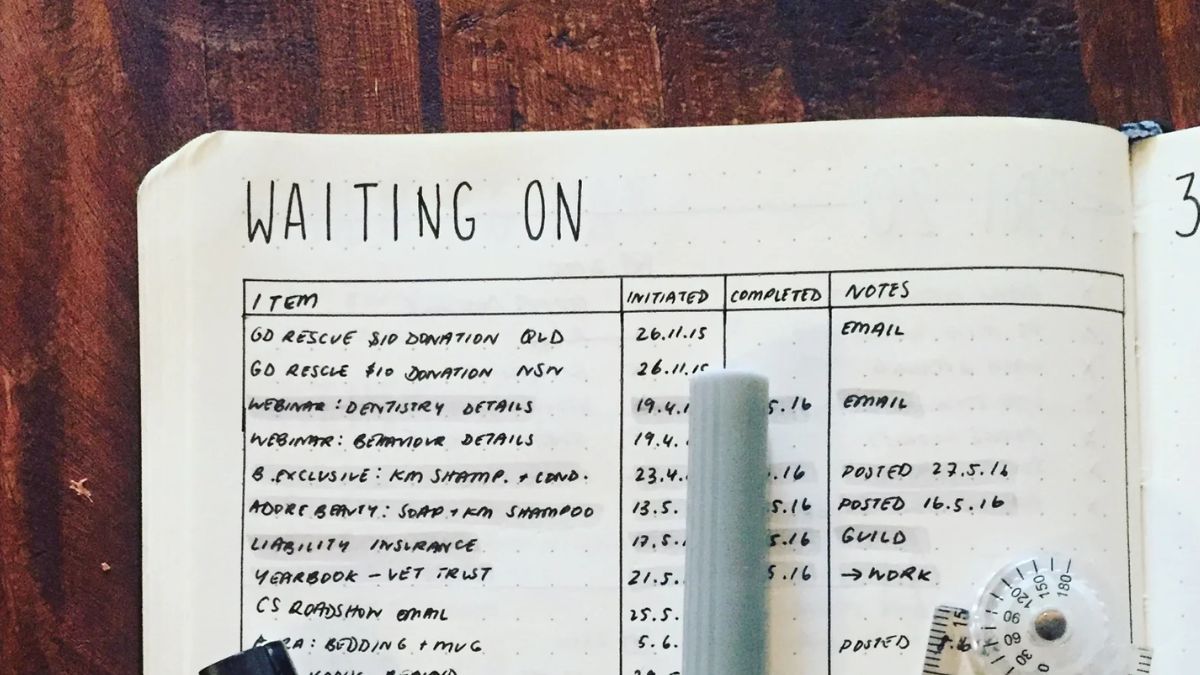 WAITING ON
3
ITEM INITIATED COMPLETED NOTES
GD RESCUE $10 DONATION QLD 26.11.15 EMAIL
GD RESCUE $10 DONATION NSW 26.11.15
WEBINAR: DENTISTRY DETAILS 19.4. 5.16 EMAIL
WEBINAR: BEHAVIOUR DETAILS 19.4.
B.EXCLUSIVE: KM SHAMP. + COND. 23.4. .16 POSTED 27.5.16
ADORE BEAUTY: SOAP + KM SHAMPOO 13.5. 5.16 POSTED 16.5.16
LIABILITY INSURANCE 17.5. 5.16 GUILD
YEARBOOK - VET TRUST 21.5. 5.16 → WORK
CS ROADSHOW EMAIL 25.5.
BEDDING + MUG 5.6. POSTED
180 150 120 90 60 30 0
15